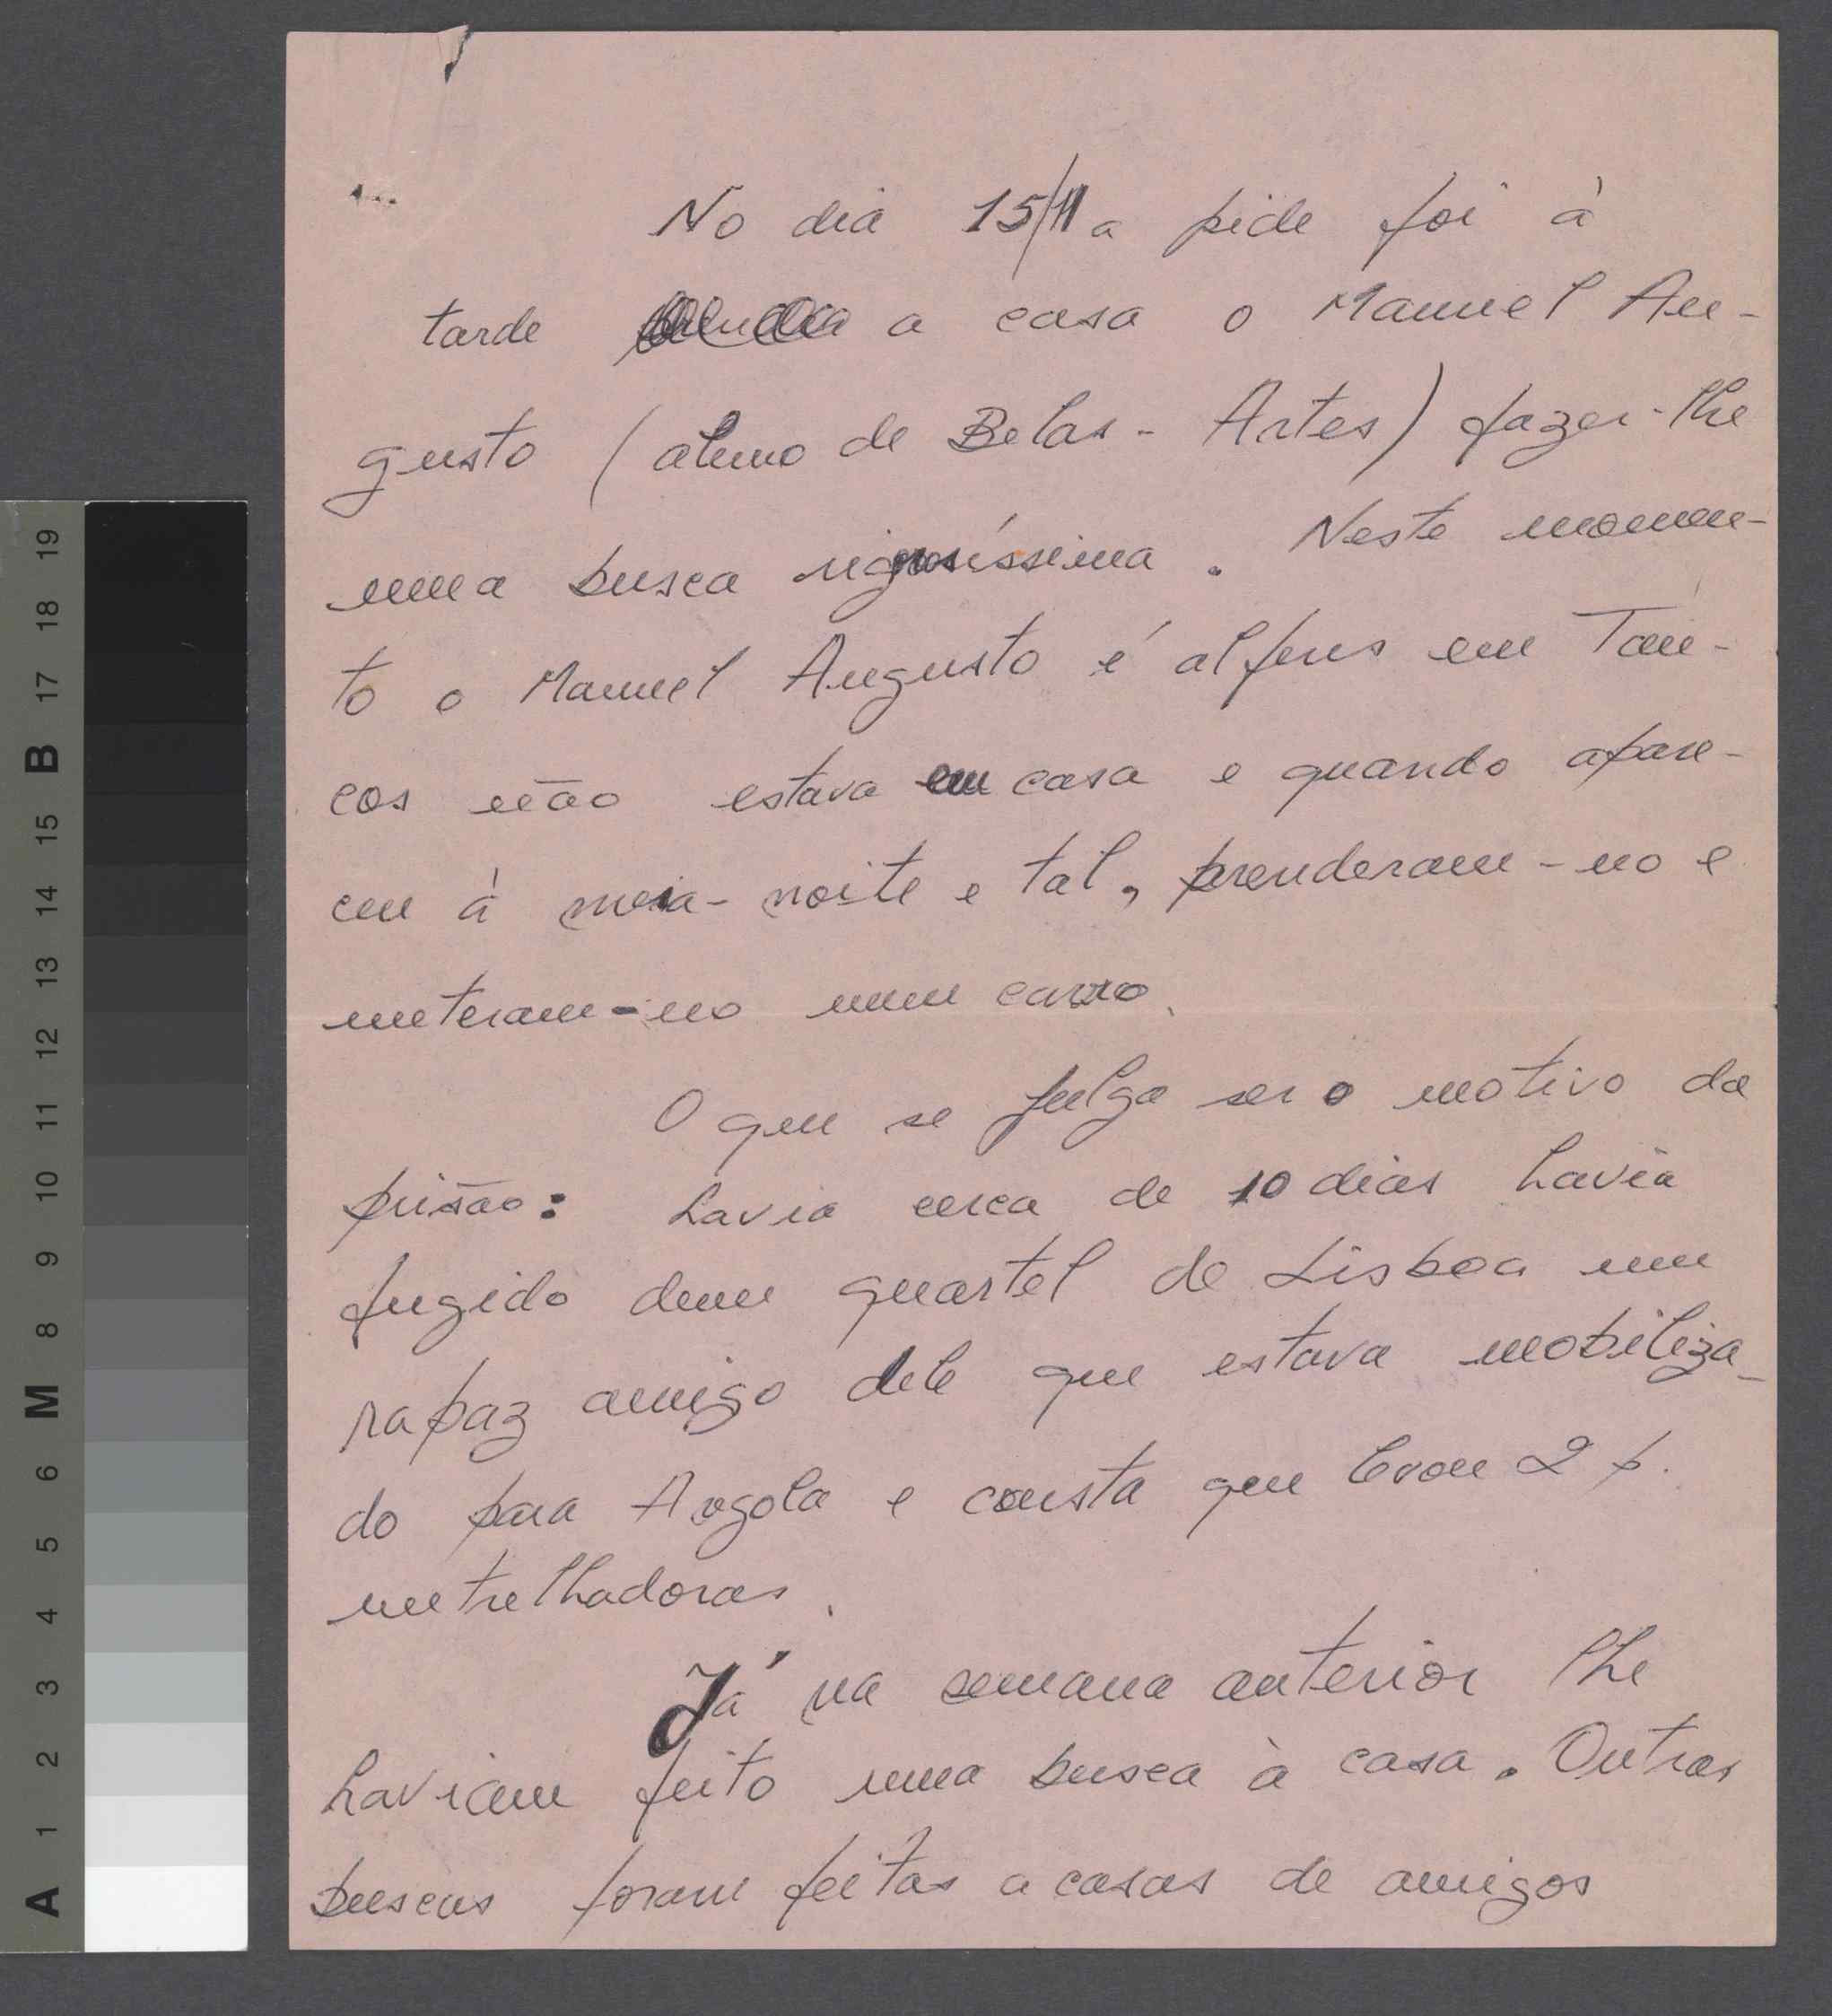 No dia 15/11 a pide foi à
tarde a casa o Manuel Au-
gusto (aluno de Belas-Artes) fazer-lhe
uma busca rigorosíssima. Neste momen-
to o Manuel Augusto é alferes em Tan-
cos não estava em casa e quando apare-
ceu à meia-noite e tal, prenderam-no e
meteram-no num carro.
O que se julga ser o motivo da
prisão: havia cerca de 10 dias havia
fugido dum quartel de Lisboa um
rapaz amigo dele que estava mobiliza-
do para Angola e consta que levou 2 p.
metralhadoras.
Já na semana anterior lhe
haviam feito uma busca à casa. Outras
buscas foram feitas a casas de amigos
19
18
17
B
15
14
13
12
11
10
9
8
M
6
5
4
3
2
1
A